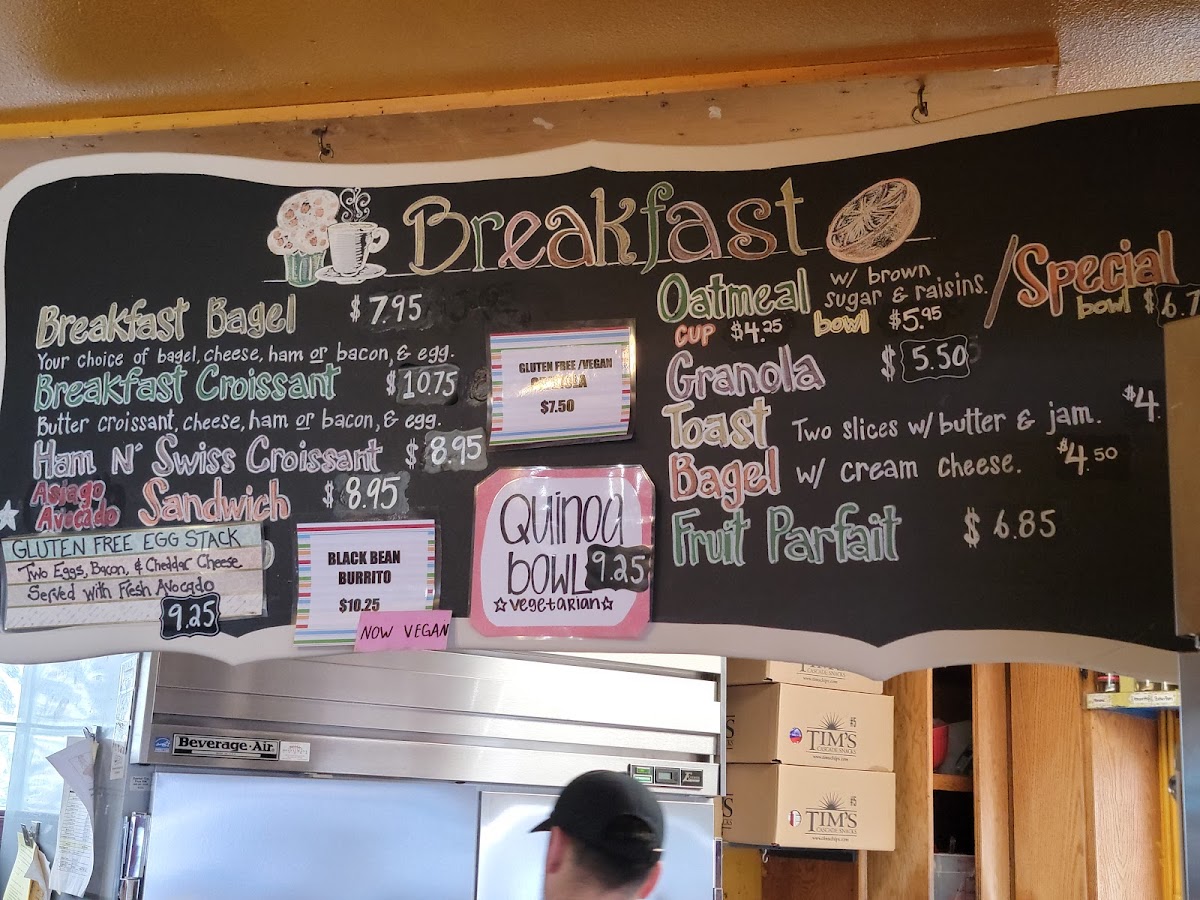 Breakfast
Breakfast Bagel $7.95
Your choice of bagel, cheese, ham or bacon, & egg.
Breakfast Croissant $10.75
Butter croissant, cheese, ham or bacon, & egg.
Ham N' Swiss Croissant $8.95
Asiago Avocado Sandwich $8.95
GLUTEN FREE EGG STACK
Two Eggs, Bacon, & Cheddar Cheese
Served with Fresh Avocado
9.25
GLUTEN FREE /VEGAN
$7.50
BLACK BEAN
BURRITO
$10.25
NOW VEGAN
Quinoa
bowl 9.25
☆vegetarian☆
Oatmeal w/ brown
sugar & raisins. / Special
cup $4.25 bowl $5.95 bowl
Granola $5.50
Toast Two slices w/ butter & jam.
Bagel w/ cream cheese. $4.50
Fruit Parfait $6.85
Beverage-Air
TIM'S
CASCADE SNACKS
www.timschips.com
#5
TIM'S
CASCADE SNACKS
www.timschips.com
#5
TIM'S
CASCADE SNACKS